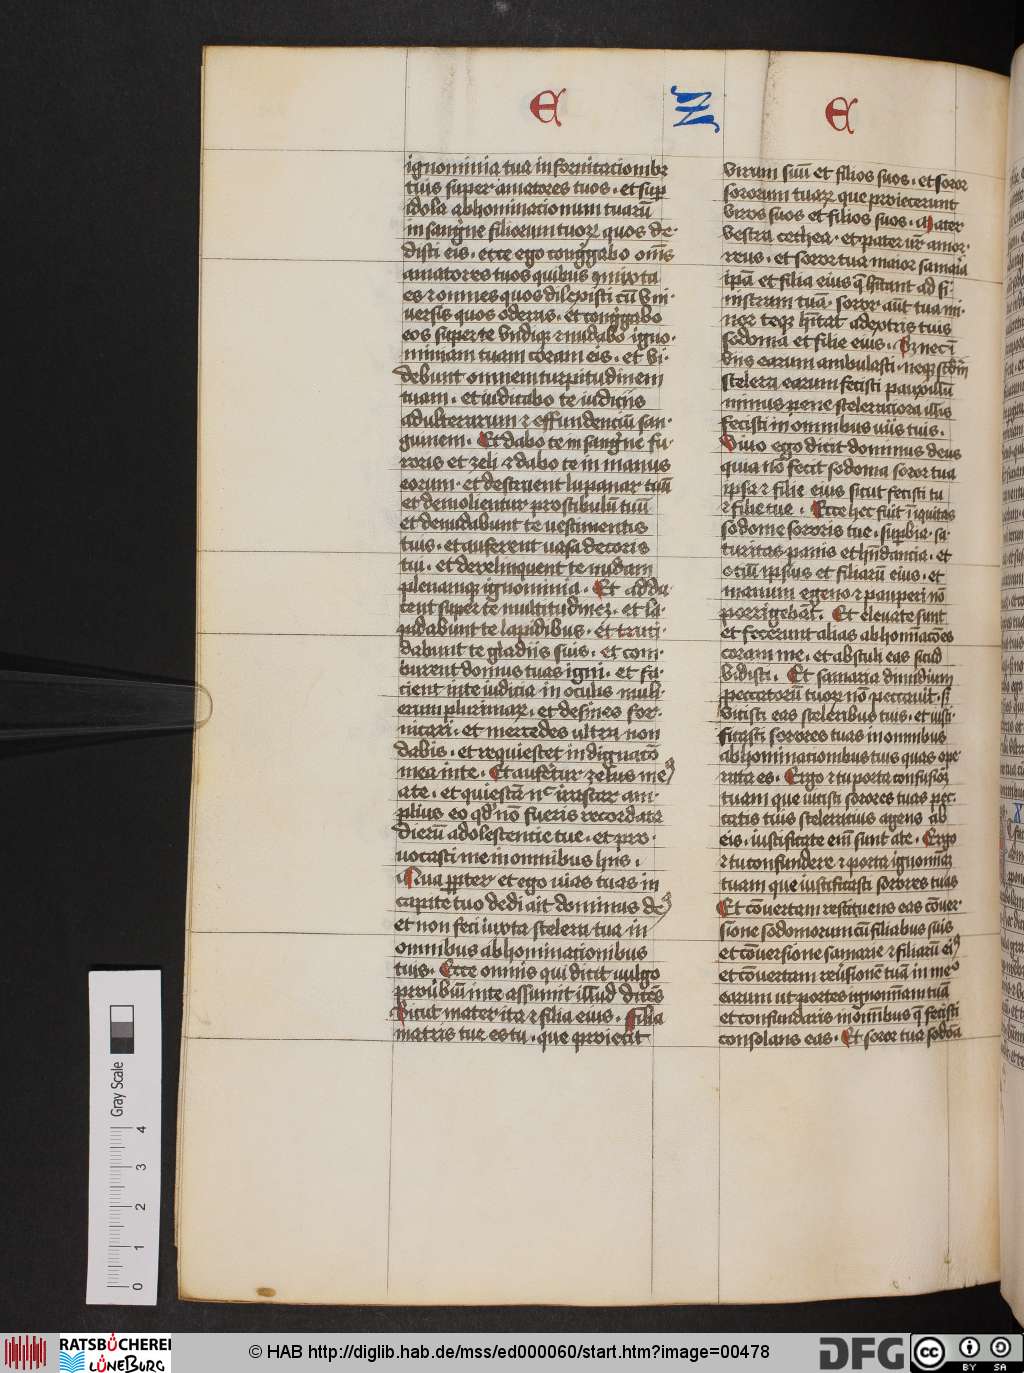 E Z E
ignominia tua in fornicacionibꝫ
tuis super amatores tuos · et sup̲
idola abhominacionum tuarū
in sang̾ne filiorum tuoꝝ quos de⸗
disti eis · ecce ego cong̾gabo om̄s
amatores tuos quibus ꝯmixta
es ⁊ omnes quos dilexisti cū vni⸗
uersis quos oderas · et cong̾gabo
eos super te vndiqꝫ ⁊ nudabo igno⸗
miniam tuam coram eis · et vi⸗
debunt omnem turpitudinem
tuam · et iudicabo te iudiciis
adulterarum ⁊ effundenciū san⸗
guinem · Et dabo te in sang̾ne fu⸗
roris et zeli ⁊ dabo te in manus
eorum · et destruent lupanar tuū
et demolientur prostibulū tuū
et denudabunt te uestimentis
tuis · et auferent uasa decoris
tui · et derelinquent te nudam
plenamqꝫ ignominia · Et addu⸗
cent super te multitudinez · et la⸗
pidabunt te lapidibus · et truci⸗
dabunt te gladiis suis · et com⸗
burent domus tuas igni · et fa⸗
cient in te iudicia in oculis muli⸗
erum plurimaꝝ · et desines for⸗
nicari · et mercedes ultra non
dabis · et requiescet indignacō
mea in te · Et aufe̾tur zelus me⁹
a te · et quiescā nᶜ irascar am⸗
plius eo qd̾ nō fueris recordata
dierū adolescentie tue · et pro⸗
uocasti me in omnibus hiis ·
Qua ꝓpter et ego uias tuas in
capite tuo dedi ait dominus de⁹
et non feci iuxta scelera tua in
omnibus abhominationibus
tuis · Ecce omnis qui dicit uulgo
prouībiū in te assumit illud dicēs
Sicut mater ita ⁊ filia eius · Filia
matris tue es tu · que proiecit
virum suū et filios suos · et soror
sororum tuaꝝ que proiecerunt
viros suos et filios suos · Mater
vestra cethea · et pater ur̄ amor⸗
reus · et soror tua maior samar̾ia
ipā et filia eius q̄ hītant ad si⸗
nistram tuā · soror aūt tua mi⸗
nor te qꝫ hītat a dextris tuis
sodoma et filie eius · Sꝫ nec ī
viis earum ambulasti · neqꝫ scd̾m
scelera earum fecisti pauxillū
minus pene sceleraciora illis
fecisti in omnibus uiis tuis ·
Viuo ego dicit dominus deus
quia nō fecit sodoma soror tua
ipsa ⁊ filie eius sicut fecisti tu
⁊ filie tue · Ecce hec fuit īiquitas
sodome sororis tue · sup̲bia · sa⸗
turitas panis et habūdancia · et
ociū ipsius et filiarū eius · et
manum egeno ⁊ pauperi nō
porrigebāt · Et eleuate sunt
et fecerunt alias abhomīacōes
coram me · et abstuli eas sicud
vidisti · Et samaria dimidium
peccatorū tuoꝝ nō peccauit · s̄
vicisti eas sceleribus tuis · et iusti⸗
ficasti sorores tuas in omnibus
abhominacionibus tuis quas ope⸗
rata es · Ergo ⁊ tu porta confusiōꝫ
tuam que uicisti sorores tuas pec⸗
catis tuis sceleracius agens ab
eis · iustificate em̄ sunt a te · Ergo
⁊ tu confundere ⁊ porta ignomīaꝫ
tuam que iustificasti sorores tuas
Et cōuertam restituens eas cōuer⸗
sione sodomorum cū filiabus suis
et cōuersione samarie ⁊ filiarū ei⁹
et cōuertam reu̾sionē tuā in meᵒ
earum ut portes ignomīam tuā
et confundaris in oīnibus q̄ fecisti
consolans eas · Et soror tua sodōa
Gray Scale
4
3
2
1
0
RATSBÜCHEREI
LÜNEBURG
© HAB http://diglib.hab.de/mss/ed000060/start.htm?image=00478
DFG
cc
BY SA